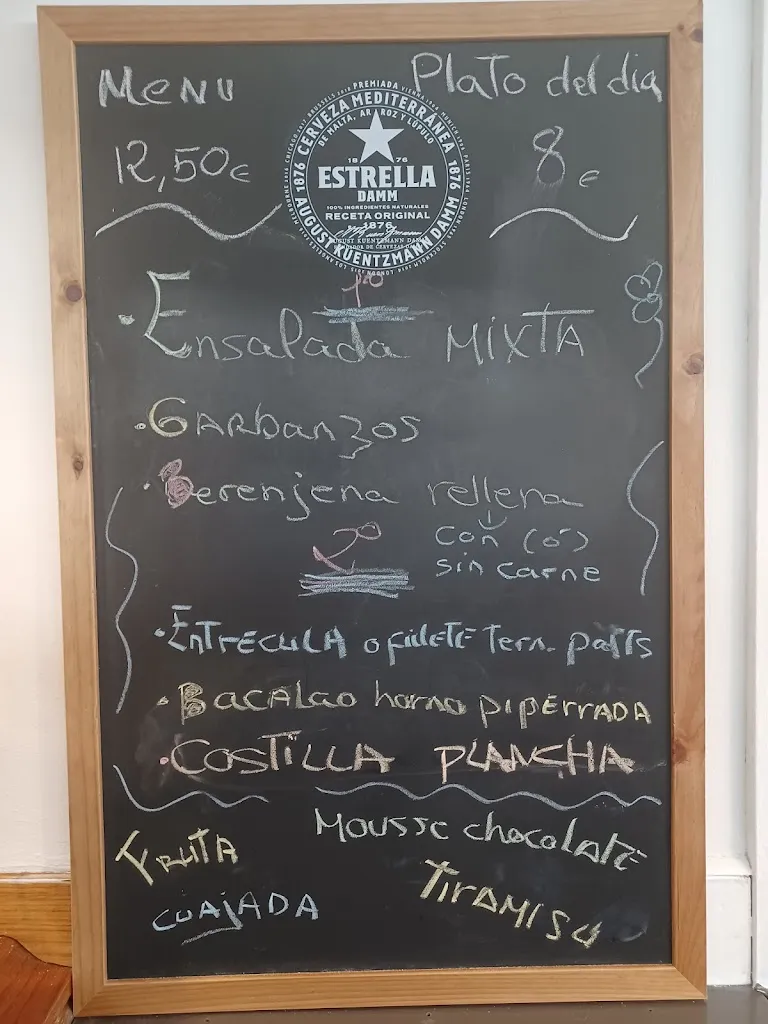 Menu
Plato del dia
12,50€
8€
CERVEZA MEDITERRÁNEA
DE MALTA, ARROZ Y LÚPULO
1876
1876
18 76
ESTRELLA
DAMM
100% INGREDIENTES NATURALES
RECETA ORIGINAL
1876
AUGUST KUENTZMANN DAMM
1º
·Ensalada MIXTA
·GARbanzos
·Berenjena rellena
con (o)
sin carne
2º
·ENTRECULA o filete tern. patts
·BACALao horno pipERRADA
·COSTILLA PLANCHA
FRUTA
Mousse chocolATE
CUAJADA
TIRAMISU